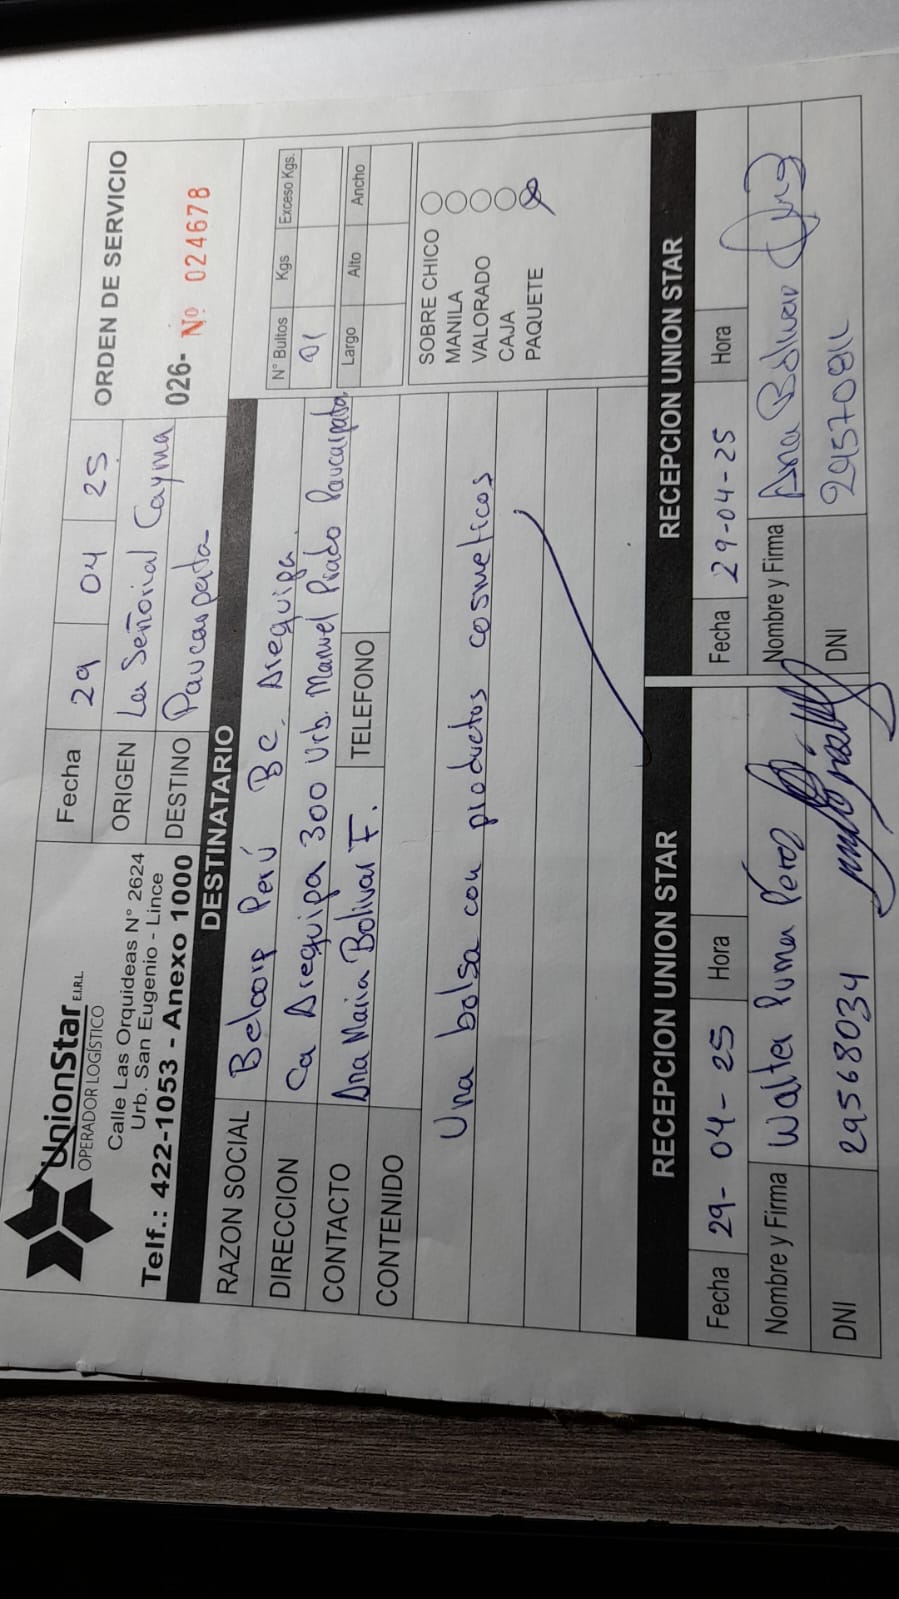 UnionStar E.I.R.L.
OPERADOR LOGÍSTICO
Calle Las Orquideas N° 2624
Urb. San Eugenio - Lince
Telf.: 422-1053 - Anexo 1000
Fecha 29 04 25
ORIGEN La Señorial Cayma
DESTINO Paucarpata
ORDEN DE SERVICIO
026- Nº 024678
DESTINATARIO
RAZON SOCIAL Belcorp Perú BC. Arequipa.
DIRECCION Ca Arequipa 300 Urb. Manuel Prado Paucarpata
CONTACTO Ana Maria Bolivar F. TELEFONO
N° Bultos Kgs Exceso Kgs.
01
Largo Alto Ancho
CONTENIDO
Una bolsa con productos cosmeticos
SOBRE CHICO
MANILA
VALORADO
CAJA
PAQUETE
RECEPCION UNION STAR
Fecha 29-04-25 Hora
Nombre y Firma Walter Puma Pérez
DNI 29568034
RECEPCION UNION STAR
Fecha 29-04-25 Hora
Nombre y Firma Ana Bolivar
DNI